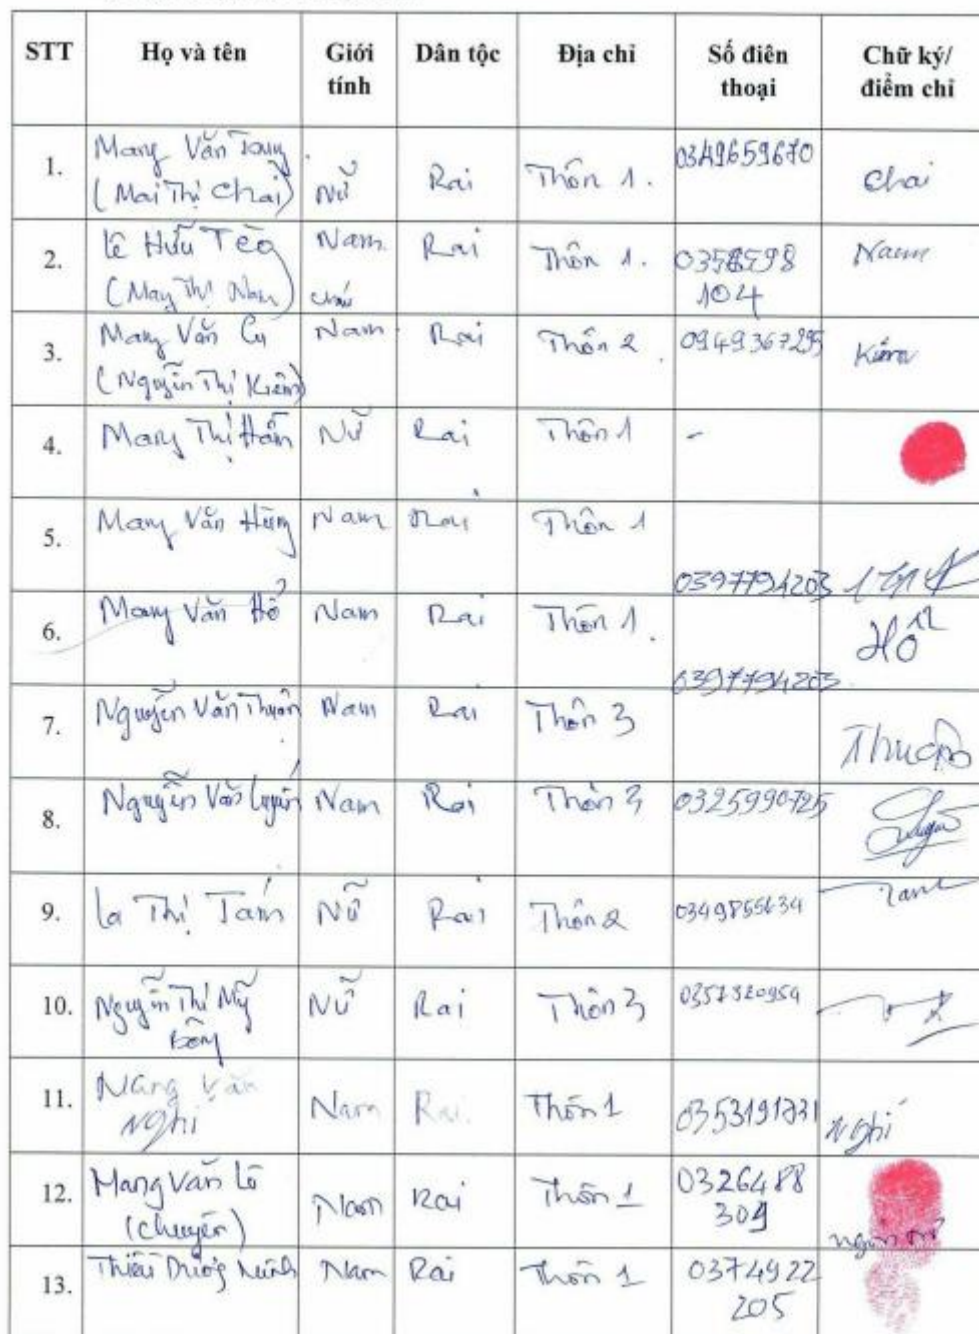 STT Họ và tên Giới tính Dân tộc Địa chỉ Số điên thoại Chữ ký/ điểm chỉ
1. Mang Văn Tang (Mai Thị Chai) Nữ Rai Thôn 1. 0349659670 Chai
2. Lê Hữu Tèo (Mang Thị Nam) Nam Rai Thôn 1. 104 Nam
3. Mang Văn (Nguyễn Thị Kiêm) Nam Rai Thôn 2 0949367295 Kiêm
4. Mang Thị Nữ Rai Thôn 1 -
5. Mang Văn Hùng Nam Rai Thôn 1 0397794203
6. Mang Văn Hổ Nam Rai Thôn 1. 0397794203 Hổ
7. Nguyễn Văn Thuận Nam Rai Thôn 3 Thuận
8. Nguyễn Văn Luyến Nam Rai Thôn 3 0325990725
9. La Thị Tám Nữ Rai Thôn 2
10. Nguyễn Thị Mỹ Nữ Rai Thôn 3
11. Mang Văn Nghi Nam Rai Thôn 1 Nghi
12. Mang Văn Lô (Chuyên) Nam Rai Thôn 1 0326488 309
13. Thiều Dương Minh Nam Rai Thôn 1 0374922 205